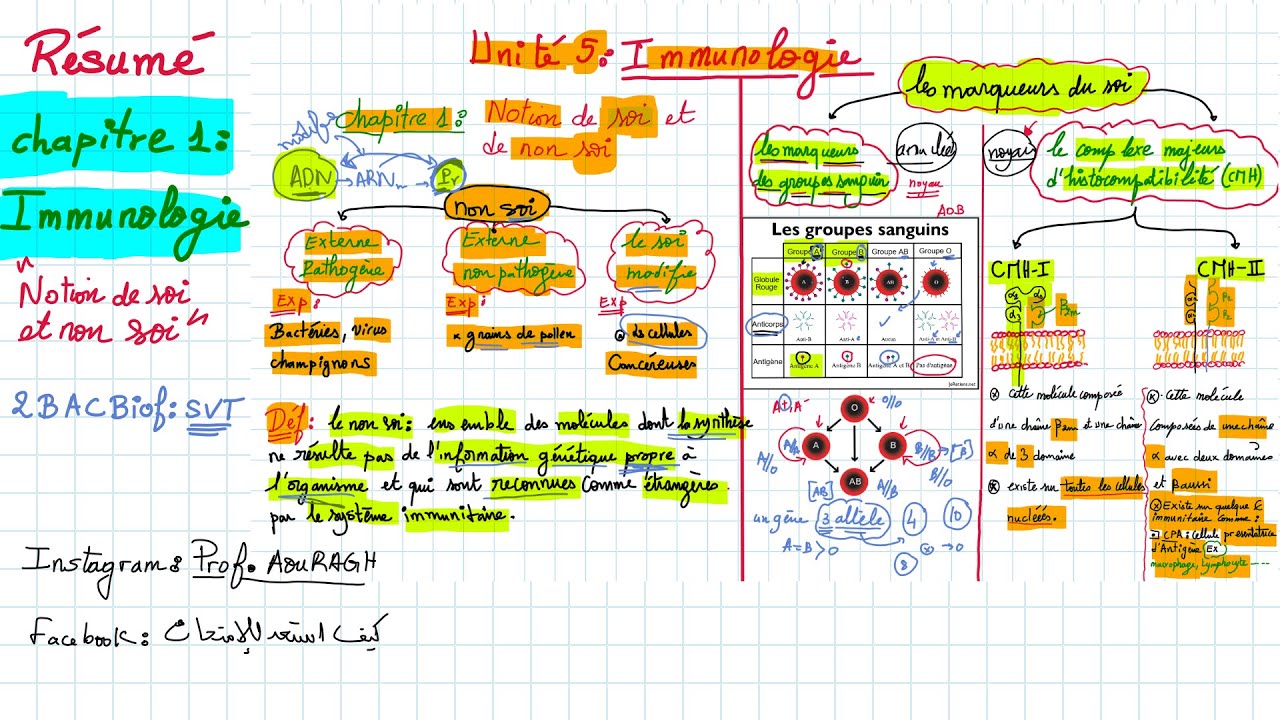 Résumé
chapitre 1:
Immunologie
"Notion de soi
et non soi"
2BACBiof: SVT
Instagram: Prof. AOURAGH
Facebook: كيف استعد للإمتحان
Unité 5: Immunologie
chapitre 1: Notion de soi et
de non soi
modifie
ADN → ARNm → Pr
non soi
Externe
Pathogène
Exp:
Bactéries, virus
champignons
Externe
non pathogène
Exp:
grains de pollen
le soi
modifie
Exp
ls cellules
Cancéreuses
Déf: le non soi: ensemble des molécules dont la synthèse
ne résulte pas de l'information génétique propre à
l'organisme et qui sont reconnues comme étrangères.
par le système immunitaire.
les marqueurs du soi
les marqueurs
des groupes sanguin
anuclée
noyau
AOB
Les groupes sanguins
Groupe A Groupe B Groupe AB Groupe O
Globule
Rouge
A B AB O
Anticorps
Anti-B Anti-A Aucun Anti-A et Anti-B
Antigène
Antigène A Antigène B Antigène A et B Pas d'antigène
A+, A-
O O//O
A B
A//A B//B → [B]
A//O B//O
[AB] AB A//B
un gène 3 allèle 4 10
A=B>O
8
noyau
le complexe majeurs
d'histocompatibilité (CMH)
CMH-I
α2 α1
α3 β2m
cette molécule composé
d'une chaîne β2m et une chaîne
α de 3 domaine
existe sur toutes les cellules
nucléés.
CMH-II
cette molécule
composées de une chaîne
α avec deux domaines
et β aussi
Existe sur quelque C
immunitaire comme:
CPA: cellule présentatrice
d'Antigène Ex
macrophage, lymphocyte ----